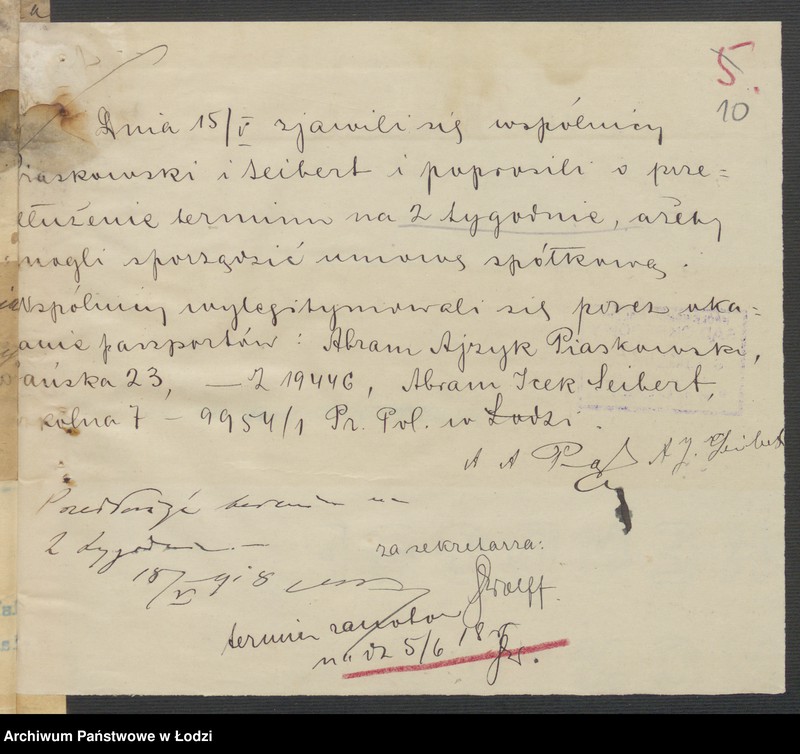 5.
10
Dnia 15/V zjawili się wspólnicy
Piaskowski i Seibert i poprosili o prze-
dłużenie terminu na 2 tygodnie, ażeby
mogli sporządzić umowę spółkową.
Wspólnicy wylegitymowali się przez oka-
zanie paszportów: Abram Ajzyk Piaskowski,
ańska 23, — Z 19446, Abram Icek Seibert,
olna 7 — 9954/1 Pr. Pol. w Łodzi.
A A P A J. Seibert
Przedłużyć termin na
2 tygodnie. —
18/V 918
za sekretarza:
Wolff.
termin
na dz 5/6 18 r
Archiwum Państwowe w Łodzi